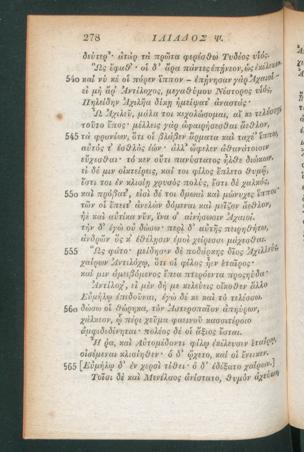 278 ΙΛΙΑΔΟΣ Ψ.
δεύτερ᾽· ἀτὰρ τὰ πρῶτα φερέσθω Τυδέος υἱός.
Ὣς ἔφαθ᾽· οἱ δ᾽ ἄρα πάντες ἐπῄνεον, ὡς ἐκέλευεν.
540 καί νύ κέ οἱ πόρεν ἵππον – ἐπῄνησαν γὰρ Ἀχαιοί –
εἰ μὴ ἄρ᾽ Ἀντίλοχος, μεγαθύμου Νέστορος υἱός,
Πηλείδην Ἀχιλῆα δίκῃ ἠμείψατ᾽ ἀναστάς·
Ὦ Ἀχιλεῦ, μάλα τοι κεχολώσομαι, αἴ κε τελέσσῃς
τοῦτο ἔπος· μέλλεις γὰρ ἀφαιρήσεσθαι ἄεθλον,
545 τὰ φρονέων, ὅτι οἱ βλάβεν ἅρματα καὶ ταχέ᾽ ἵππω,
αὐτός τ᾽ ἐσθλὸς ἐών· ἀλλ᾽ ὤφελεν ἀθανάτοισιν
εὔχεσθαι· τό κεν οὔτι πανύστατος ἦλθε διώκων.
εἰ δέ μιν οἰκτείρεις, καί τοι φίλος ἔπλετο θυμῷ,
ἔστι τοι ἐν κλισίῃ χρυσὸς πολύς, ἔστι δὲ χαλκὸς
550 καὶ πρόβατ᾽, εἰσὶ δέ τοι δμωαὶ καὶ μώνυχες ἵπποι·
τῶν οἱ ἔπειτ᾽ ἀνελὼν δόμεναι καὶ μεῖζον ἄεθλον,
ἠὲ καὶ αὐτίκα νῦν, ἵνα σ᾽ αἰνήσωσιν Ἀχαιοί.
τὴν δ᾽ ἐγὼ οὐ δώσω· περὶ δ᾽ αὐτῆς πειρηθήτω,
ἀνδρῶν ὅς κ᾽ ἐθέλησιν ἐμοὶ χείρεσσι μάχεσθαι.
555 Ὣς φάτο· μείδησεν δὲ ποδάρκης δῖος Ἀχιλλεὺς
χαίρων Ἀντιλόχῳ, ὅτι οἱ φίλος ἦεν ἑταῖρος·
καί μιν ἀμειβόμενος ἔπεα πτερόεντα προσηύδα·
Ἀντίλοχ᾽, εἰ μὲν δή με κελεύεις οἴκοθεν ἄλλο
Εὐμήλῳ ἐπιδοῦναι, ἐγὼ δέ κε καὶ τὸ τελέσσω.
560 δώσω οἱ θώρηκα, τὸν Ἀστεροπαῖον ἀπηύρων,
χάλκεον, ᾧ πέρι χεῦμα φαεινοῦ κασσιτέροιο
ἀμφιδεδίνηται· πολέος δέ οἱ ἄξιος ἔσται.
Ἦ ῥα, καὶ Αὐτομέδοντι φίλῳ ἐκέλευσεν ἑταίρῳ,
οἰσέμεναι κλισίηθεν· ὁ δ᾽ ᾤχετο, καί οἱ ἔνεικεν.
565 [Εὐμήλῳ δ᾽ ἐν χερσὶ τίθει· ὁ δ᾽ ἐδέξατο χαίρων.]
Τοῖσι δὲ καὶ Μενέλαος ἀνίστατο, θυμὸν ἀχεύων,